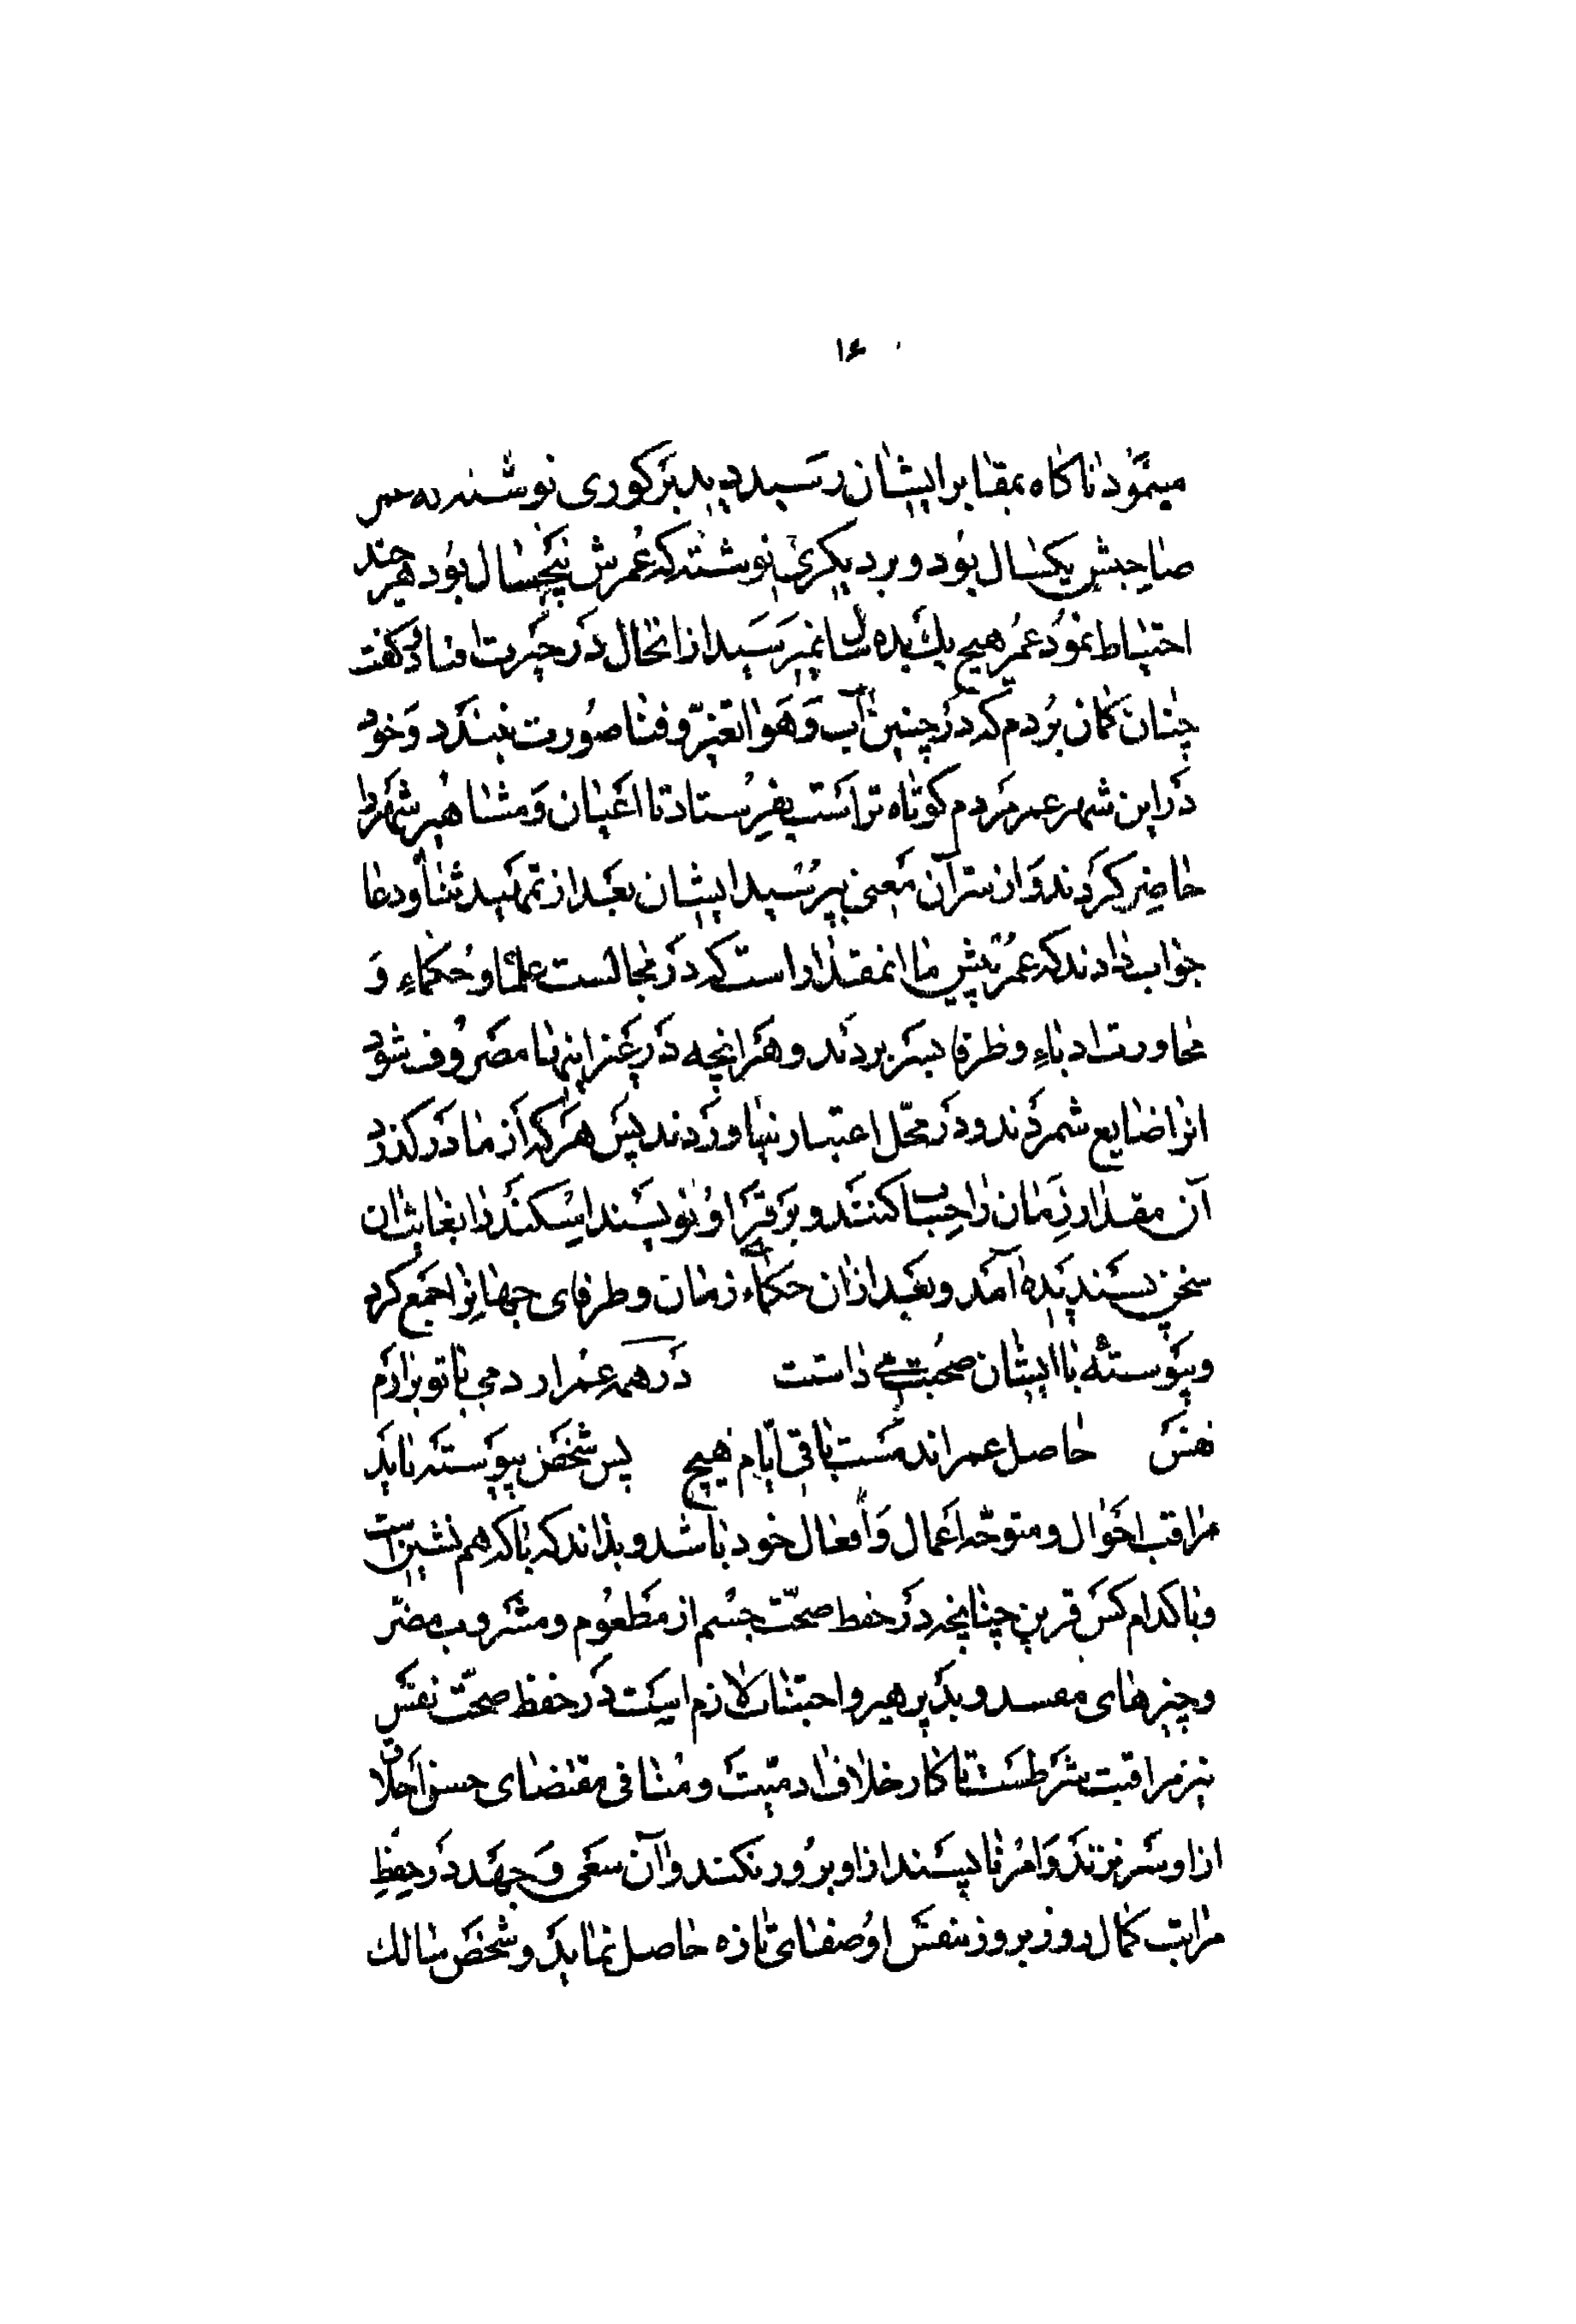 ۱۶
مینمود ناکاه بمقابر ایشان رسید دید بر کوری نوشته که عمر
صاحبش یکسال بود و بر دیکری نوشته که عمرش پنجسال بود هر چند
احتیاط نمود عمر هیچ یك بده سال نمیرسید از انحال در حیرت افتاد کفت
چنان کمان بردم که در چنین آب و هوا تغیّر و فنا صورت نبندد و خود
در این شهر عمر مردم کوتاه تر است بفرستاد تا اعیان و مشاهیر شهر را
حاضر کردند و از سر آن معنی بپرسید ایشان بعد از تمهید ثنا و دعا
جواب دادند که عمر پیش ما انمقدار است که در مجالست علما و حکماءِ و
محاورت ادباءِ و ظرفا بسر بردند و هر انچه در غیر اینها مصروف شود
انرا ضایع شمردند و در محّل اعتبار نیاوردند پس هر که از ما در کذرد
آن مقدار زمان را حساب کنند و بر قبر او نویسند اسکندر را بغایت ان
سخن پسندیده آمد و بعد از ان حکماء زمان و ظرفای جهانرا جمع کرد
و پیوسته با ایشان صحبت می داشت در همه عمر ار دمی با تو برارم
نفس حاصل عمر اندمست باقی ایّام هیچ پس شخص پیوسته باید
مراقب احوال و متوجّه اعمال و افعال خود باشد و بداند که با که هم نشین است
و با کدام کس قرین چنانچه در حفظ صحّت جسم از مطعوم و مشروب مضّر
و چیزهای مفسد و بد پرهیز و اجتناب لازم است در حفظ صحّت نفس
نیز مراقبت شرطست تا کار خلاف ادمیّت و منافی مقتضای حسن اخلاق
از او سر نزند و امر ناپسند از او بروز نکند و آن سعی و جهد در حفظِ
مراتب کمال روز بروز بنفس او صفای تازه حاصل نماید و شخص سالك